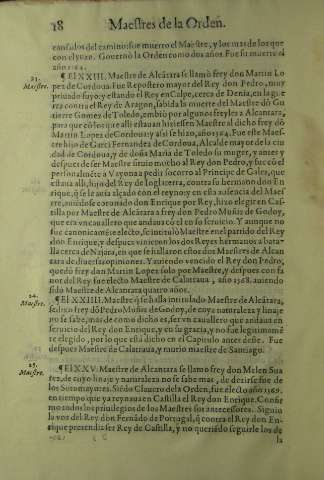 18 Maestres de la Orden.
cansados del camino: fue muerto el Maestre, y los mas de los que
con el yuan. Gouernò la Orden como dos años. Fue su muerte el
año 1364.
23. ¶ El XXIII. Maestre de Alcátara se llamò frey don Martin Lo
Maestre. pez de Cordoua: Fue Repostero mayor del Rey don Pedro, muy
priuado suyo: y estando el Rey en Calpe, cerca de Denia, en la gue
rra contra el Rey de Aragon, sabida la muerte del Maestre dõ Gu
tierre Gomez de Toledo, embiò por algunos freyles a Alcantara,
para que cõ los que alli estauan huuiessen Maestre al dicho frey dõ
Martin Lopez de Cordoua: y asi se hizo, año 1364. Fue este Maes-
tre hijo de Garci Fernandez de Cordoua, Alcalde mayor de la ciu
dad de Cordoua, y de doña Maria de su muger, y antes y
despues de ser Maestre siruio mucho al Rey don Pedro, y fue cõ el
personalmẽte a Vayona a pedir socorro al Principe de Gales, que
estaua alli, hijo del Rey de Inglaterra, contra su hermano don En
rique, q̃ se le auia alçado con el reyno: y en esta ausencia del Maes
tre, auiẽdose coronado don Enrique por Rey, hizo elegir en Cas-
tilla por Maestre de Alcantara a frey don Pedro Muñiz de Godoy,
que era vn cauallero que andaua cõ el en su seruicio. Y aunque no
fue canonicamẽte electo, se intitulò Maestre en el partido del Rey
don Enrique: y despues vinieron los dos Reyes hermanos a bata-
lla cerca de Najera, en que se hallaron estos dos Maestres de Alcan
tara de diuersas opiniones. Y auiendo vencido el Rey don Pedro,
quedò frey don Martin Lopez solo por Maestre, y despues con fa
uor del Rey fue electo Maestre de Calatraua, año 1368. auiendo
sido Maestre de Alcantara quatro años.
24. ¶ El XXIIII. Maestre q̃ se halla intitulado Maestre de Alcátara,
Maestre. se dixo frey dõ Pedro Muñiz de Godoy, de cuya naturaleza y linaje
no se sabe, mas de como dicho es, ser vn cauallero que andaua en
seruicio del Rey don Enrique, y en su gracia, y no fue legitimamẽ
te elegido, por lo que està dicho en el Capitulo antes deste. Fue
despues Maestre de Calatraua, y murio maestre de Santiago.
25. ¶ El XXV. Maestre de Alcantara se llamo frey don Melen Sua
Maestre. rez, de cuyo linaje y naturaleza no se sabe mas, de dezirse fue de
los Sotomayores. Siẽdo Clauero de la Orden, fue electo año 1369.
en tiempo que ya reynaua en Castilla el Rey don Enrique. Confir
mo todos los priuilegios de los Maestres sus antecessores. Siguio
la voz del Rey don Fernãdo de Portogal, q̃ contra el Rey don En-
rique pretendia ser Rey de Castilla, y no queriẽdo seguirle los de
la